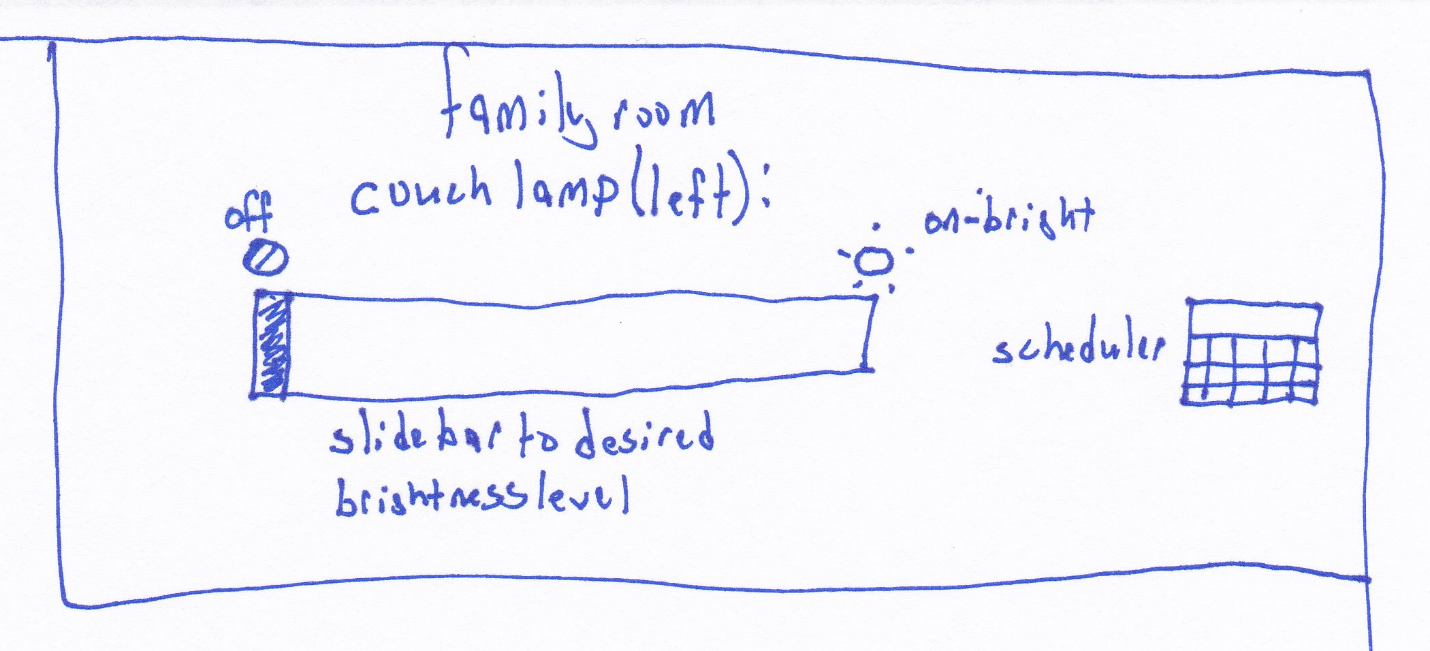 family room
couch lamp (left):
off
on-bright
scheduler
slide bar to desired
brightness level